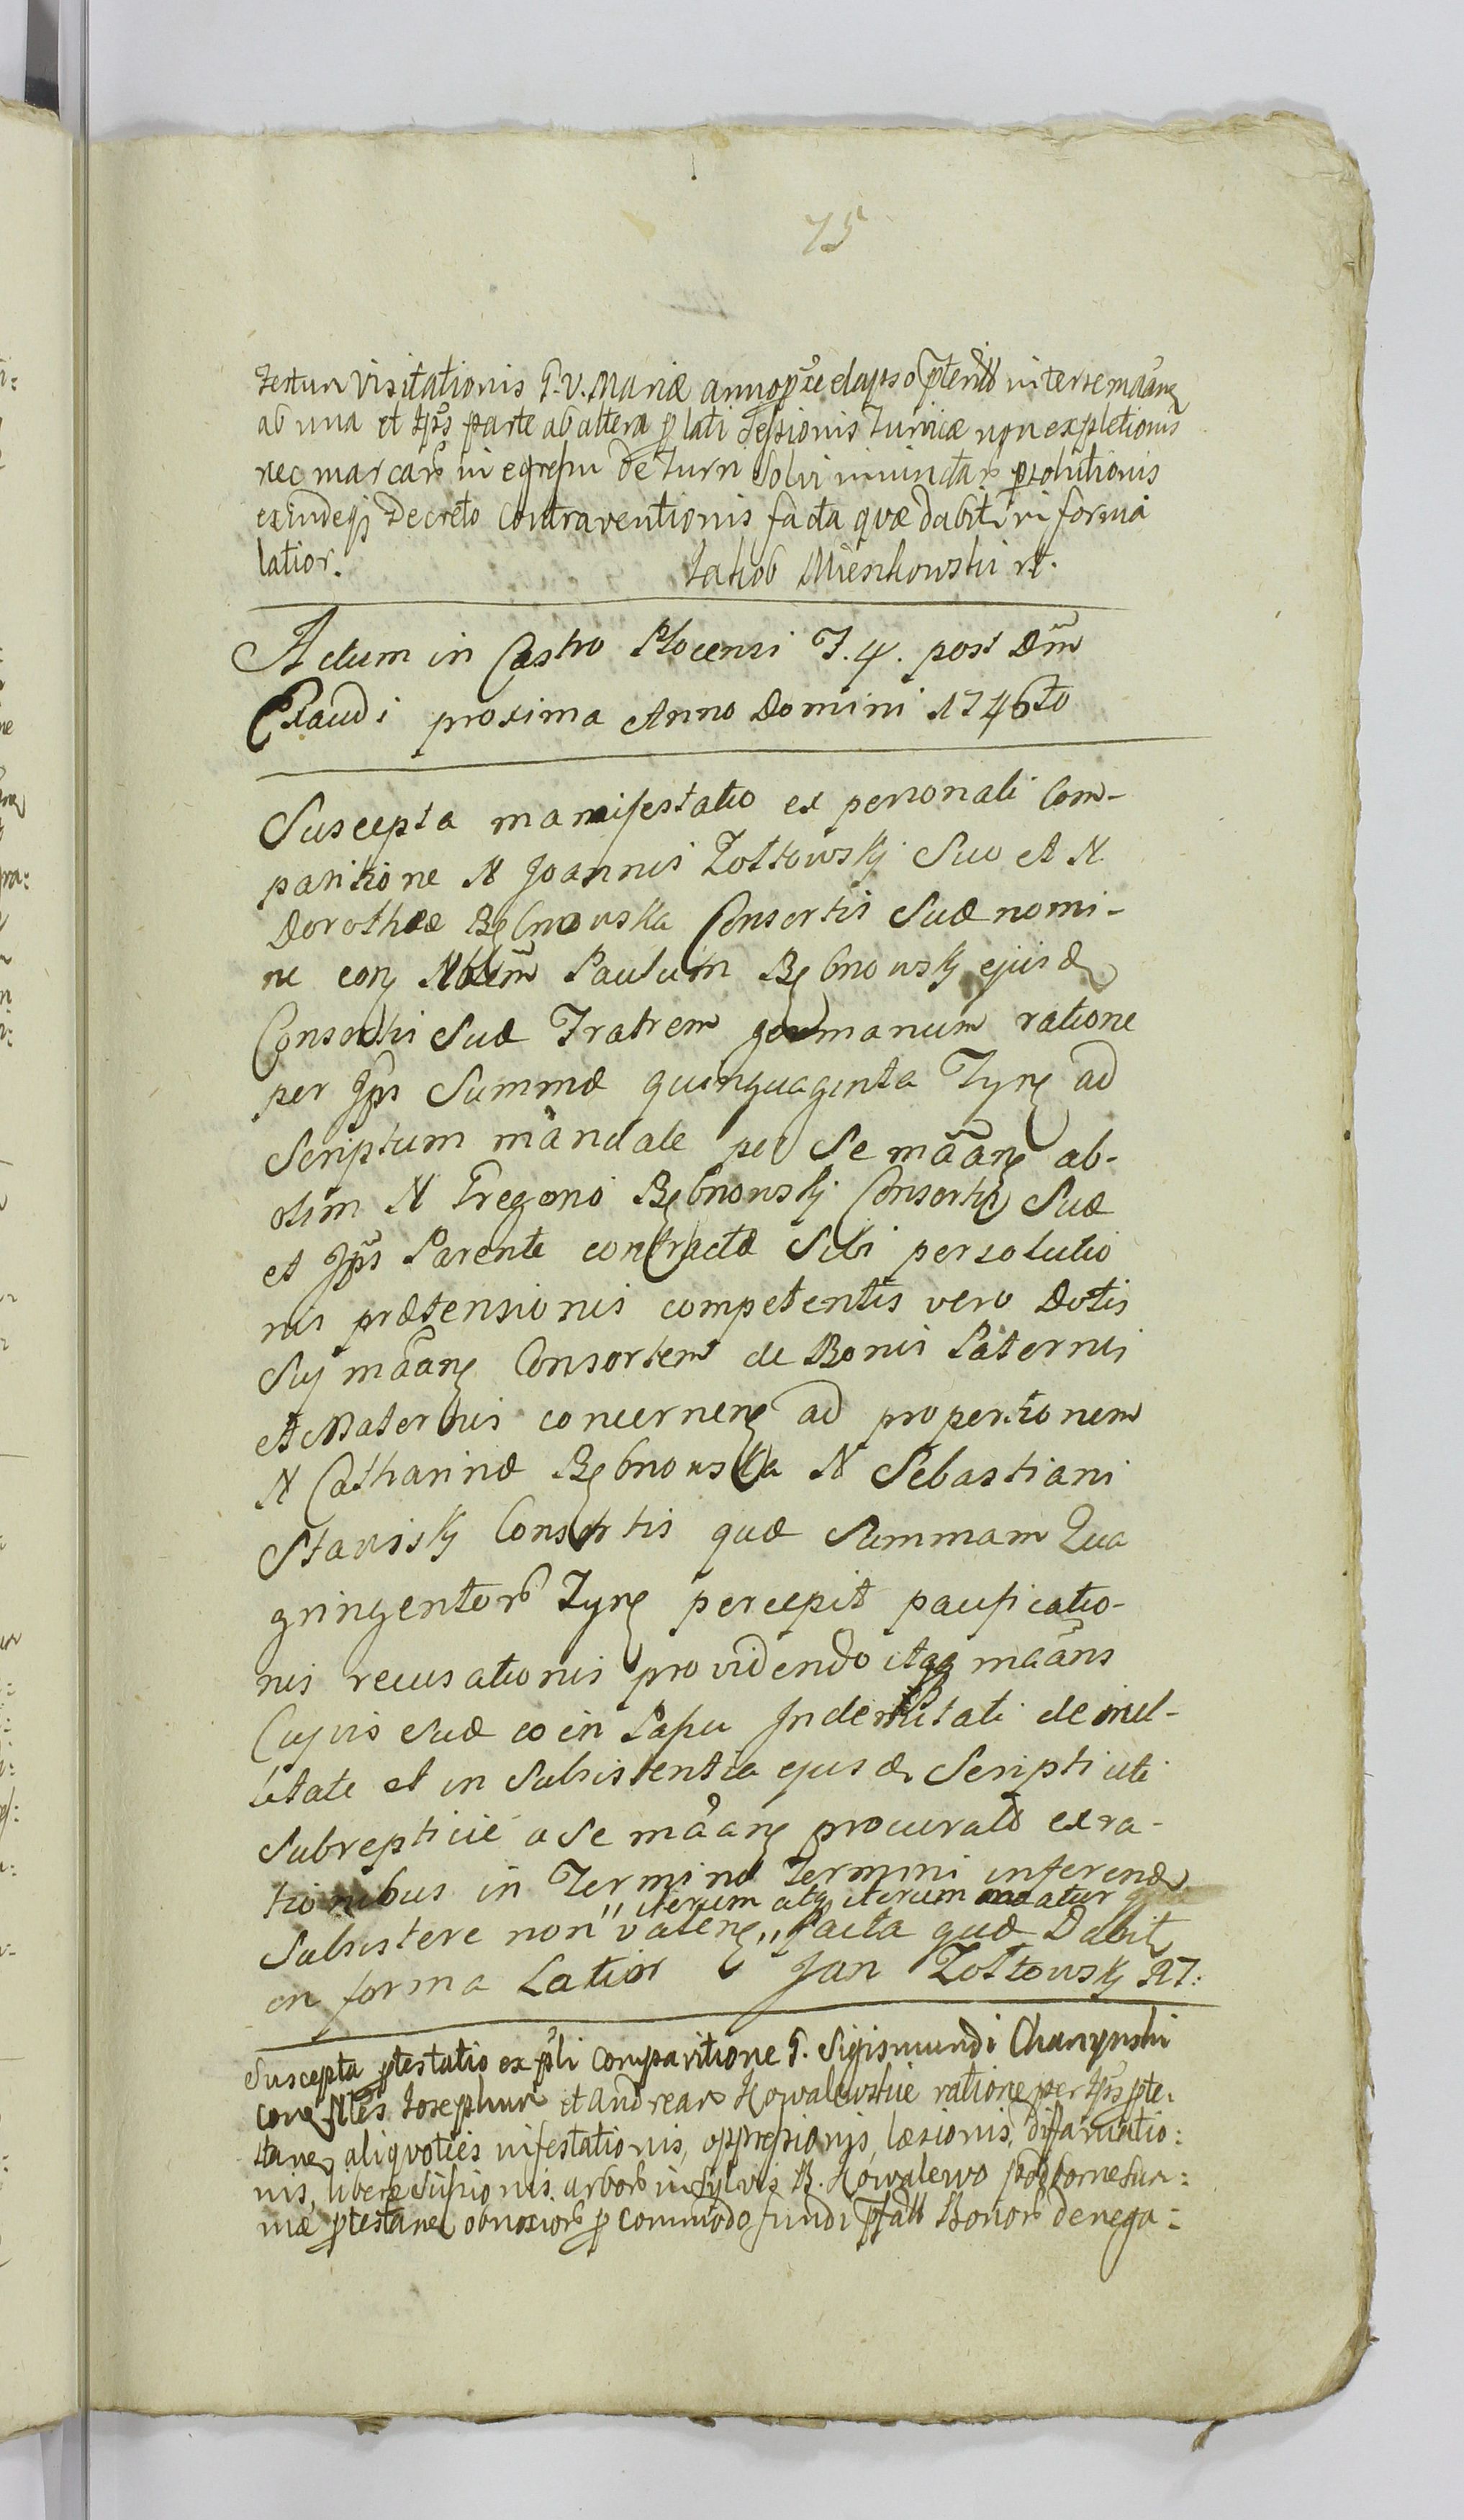 75
Festum Visitationis B. V. Mariæ anno pīe elapso ptendō inter se mãane
ab una et Ipīs parte ab altera p lati Sessionis Turriæ non expletionis
nec marcarō in egressu de Turri Solvi iniunctarō psolutionis
exindeq decreto Contraventionis facta quæ dabitr in forma
latior. Jakob Mieszkowski rt.
Actum in Castro Plocensi F. 4. post Dm̃
Exaudi proxima Anno Domini 1746to
Suscepta manifestatio ex personali Com-
paritione N Joannis Zołtowskj Suo et N
Dorotheæ Bębnowska Consortis Suæ nomi-
ne con N Paulum Bębnowskj ejusd
Consortis Suæ Fratrem germanum ratione
per Ips Summæ quinquaginta Tynf ad
Scriptum manuale per Se mãane ab-
olim N Gregorio Bębnowskj Consortis Suæ
et Ips Parente contractæ Sibi persolutio
nis prætensionis competentis vero Dotis
Suj mãane Consortem de Bonis Paternis
et Maternis concernene ad proportionem
N Catharinæ Bębnowska N Sebastiani
Stawiskj Consortis quæ Summam Qua
gringentorō Tynf percepit pacificatio-
nis recusationis providendo itaq mãans
Cujvis suæ eo in Passu Indemnitati de nul-
litate et in Subsistentia ejusd Scripti uti
Subrepticie a Se mãane procurato ex ra-
tionibus in Termino Termini inferend
iterum atq iterum mãatur
Subsistere non valene facta quæ Dabit
in forma Latior Jan Zołtowskj RT:
Suscepta ptestatio ex pli Comparitione G. Sigismundi Charzynski
cone Nles Josephum et Andream Kowalewskie ratione per Ips pte-
stane aliquoties infestationis, oppressionis, læsionis, diffamatio:
nis, liberæ cæsionis arborō in Sylvis B. Kowalewo Podborne Sum:
mæ ptestane obnoxiorō p commodo fundi pfatt Bonorō denega: